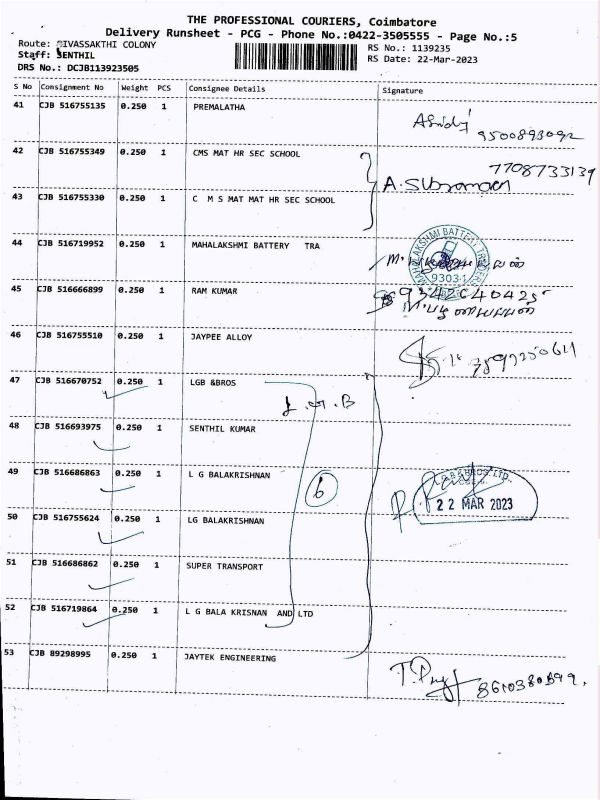 THE PROFESSIONAL COURIERS, Coimbatore
Delivery Runsheet - PCG - Phone No.:0422-3505555 - Page No.:5
Route: SIVASSAKTHI COLONY
RS No.: 1139235
Staff: SENTHIL
RS Date: 22-Mar-2023
DRS No.: DCJB113923505
S No Consignment No Weight PCS Consignee Details Signature
41 CJB 516755135 0.250 1 PREMALATHA
9500893092
42 CJB 516755349 0.250 1 CMS MAT HR SEC SCHOOL
7708733139
43 CJB 516755330 0.250 1 C M S MAT MAT HR SEC SCHOOL
44 CJB 516719952 0.250 1 MAHALAKSHMI BATTERY TRA
MAHALAKSHMI BATTERY
45 CJB 516666899 0.250 1 RAM KUMAR
46 CJB 516755510 0.250 1 JAYPEE ALLOY
47 CJB 516670752 0.250 1 LGB &BROS
L.G.B
48 CJB 516693975 0.250 1 SENTHIL KUMAR
49 CJB 516686863 0.250 1 L G BALAKRISHNAN
6
22 MAR 2023
50 CJB 516755624 0.250 1 LG BALAKRISHNAN
51 CJB 516686862 0.250 1 SUPER TRANSPORT
52 CJB 516719864 0.250 1 L G BALA KRISNAN AND LTD
53 CJB 89298995 0.250 1 JAYTEK ENGINEERING